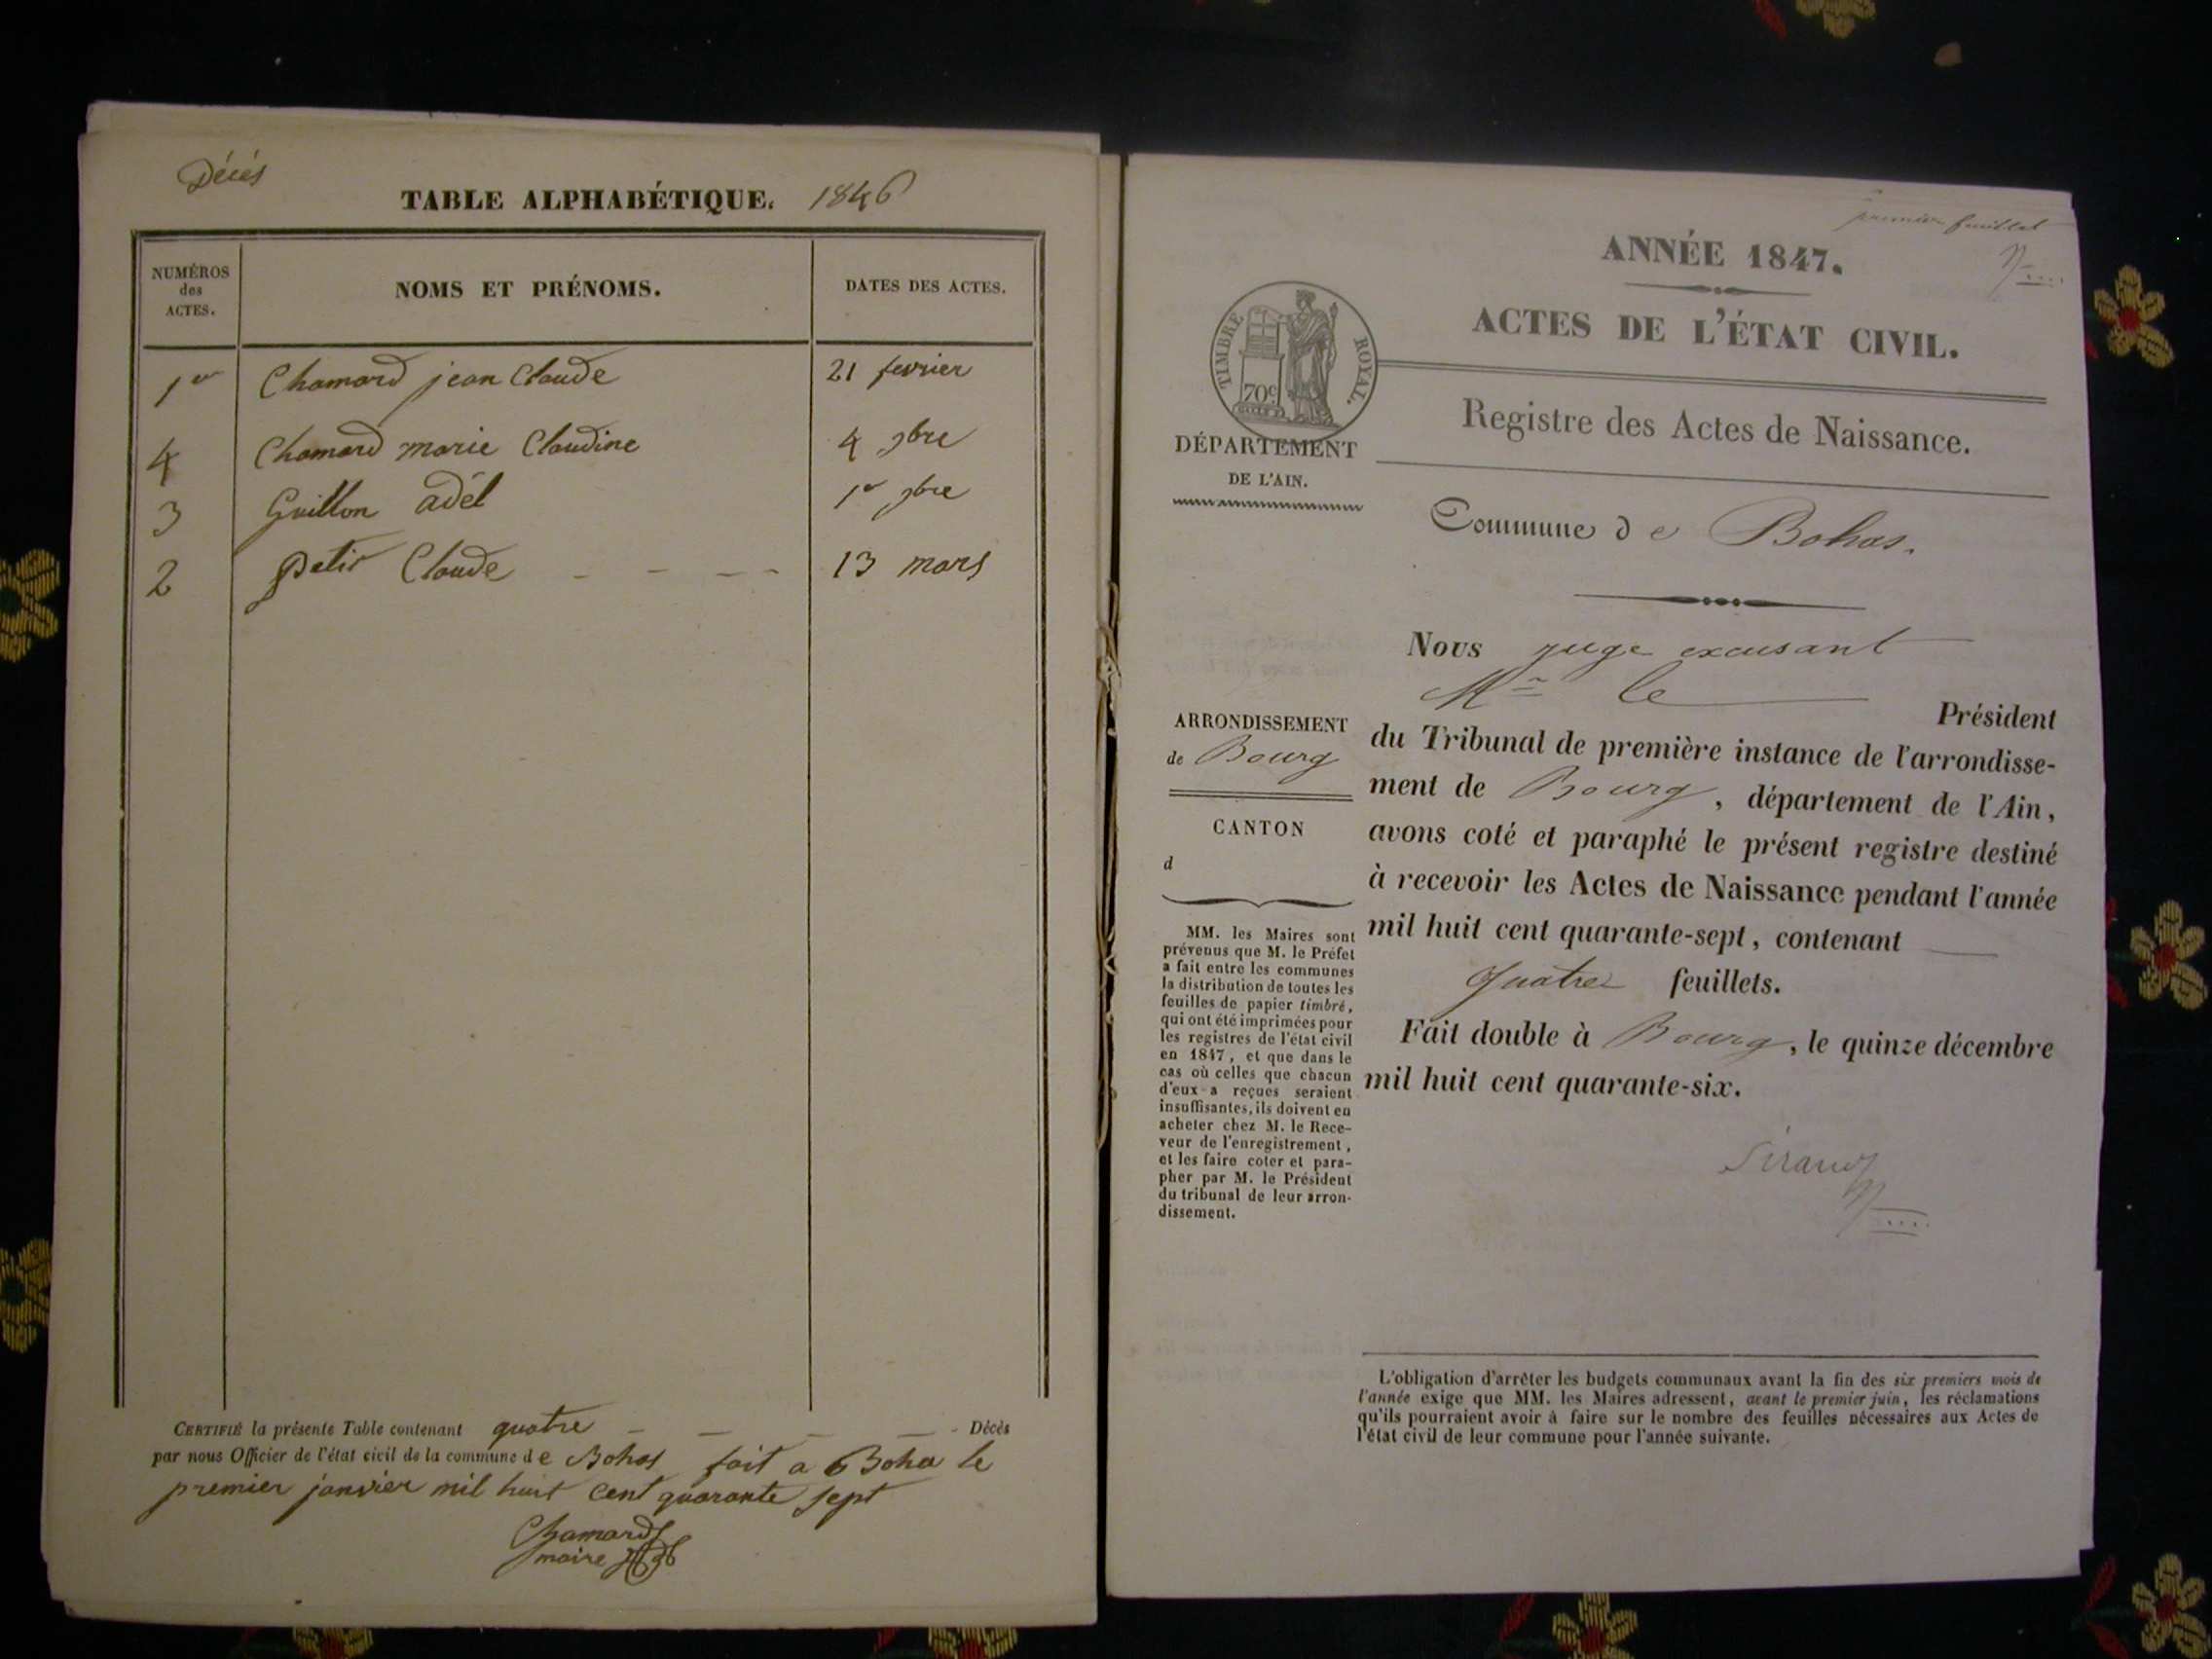 Décés
TABLE ALPHABÉTIQUE. 1846
NUMÉROS
des
ACTES.
NOMS ET PRÉNOMS.
DATES DES ACTES.
1er Chamard jean Claude 21 fevrier
4 Chamard marie Claudine 4 9bre
3 Guillon adél 1er 9bre
2 petit Claude - - - - 13 mars
CERTIFIÉ la présente Table contenant quatre - - - - Décès
par nous Officier de l'état civil de la commune de Bohas fait a Boha le
premier janvier mil huit cent quarante sept
Chamard
maire
premier feuillet
ANNÉE 1847.
ACTES DE L'ÉTAT CIVIL.
TIMBRE ROYAL.
70c
DÉPARTEMENT
DE L'AIN.
Registre des Actes de Naissance.
Commune de Bohas.
Nous juge excusant
Mr le Président
du Tribunal de première instance de l'arrondisse-
ment de Bourg, département de l'Ain,
avons coté et paraphé le présent registre destiné
à recevoir les Actes de Naissance pendant l'année
mil huit cent quarante-sept, contenant
quatre feuillets.
Fait double à Bourg, le quinze décembre
mil huit cent quarante-six.
Sirand
ARRONDISSEMENT
de Bourg
CANTON
d
MM. les Maires sont
prévenus que M. le Préfet
a fait entre les communes
la distribution de toutes les
feuilles de papier timbré,
qui ont été imprimées pour
les registres de l'état civil
en 1847, et que dans le
cas où celles que chacun
d'eux a reçues seraient
insuffisantes, ils doivent en
acheter chez M. le Rece-
veur de l'enregistrement,
et les faire coter et para-
pher par M. le Président
du tribunal de leur arron-
dissement.
L'obligation d'arrêter les budgets communaux avant la fin des six premiers mois de
l'année exige que MM. les Maires adressent, avant le premier juin, les réclamations
qu'ils pourraient avoir à faire sur le nombre des feuilles nécessaires aux Actes de
l'état civil de leur commune pour l'année suivante.